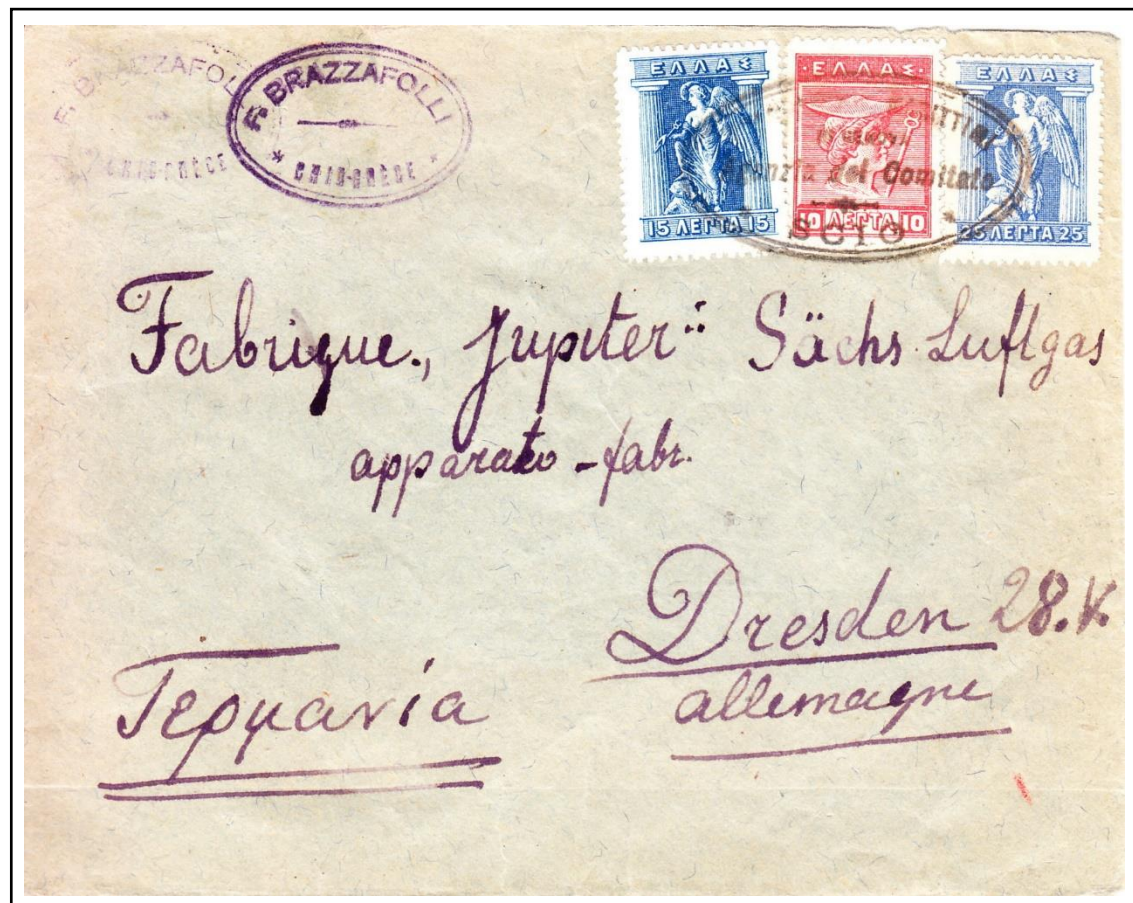 F. BRAZZAFOLLI
CHIO-GRÈCE
F. BRAZZAFOLLI
* CHIO-GRÈCE *
ΕΛΛΑΣ
15 ΛΕΠΤΑ 15
·ΕΛΛΑΣ·
10 ΛΕΠΤΑ 10
ΕΛΛΑΣ
25 ΛΕΠΤΑ 25
Agenzia del Comitato
SCIO
Fabrique „Jupiter“ Sächs Luftgas
apparate-fabr.
Dresden 28.K.
allemagne
Γερμανία